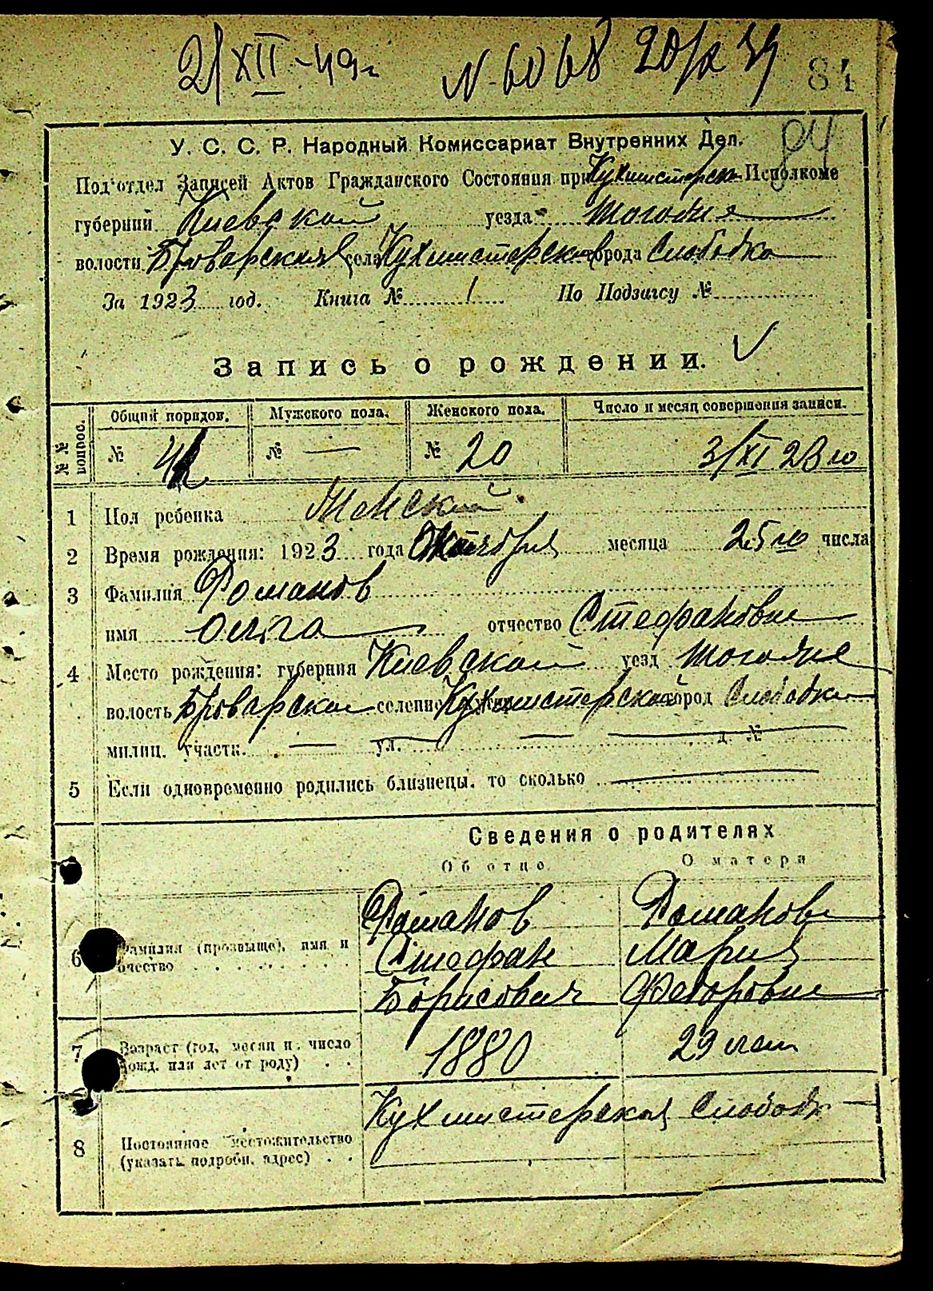 21/XII-49г N 6068 20/х 39 84
84
У. С. С. Р. Народный Комиссариат Внутренних Дел.
Под'отдел Записей Актов Гражданского Состояния при Кухмистерск. Исполкоме
губернии Киевской уезда тогоже
волости Броварская села Кухмистерская города Слободка
За 1923 год. Книга № 1 По Подзагсу №
Запись о рождении.
№№ вопрос. Общий порядов. Мужского пола. Женского пола. Число и месяц совершения записи.
№ № — № 20 3/XI 23 го
1 Пол ребенка Женский
2 Время рождения: 1923 года Октября месяца 25 го числа
3 Фамилия Романов
имя Ольга отчество Стефановна
4 Место рождения: губерния Киевской уезд тогоже
волость Броварской селение Кухмистерской город Слободка
милиц. участк. — ул. — д. №
5 Если одновременно родились близнецы. то сколько —
Сведения о родителях
Об отце О матери
6 Фамилия (прозвыще), имя и отчество Романов Романова
Стефан Мария
Борисович Федоровна
7 Возраст (год, месяц и число рожд. или лет от роду) 1880 29 лет
8 Постоянное местожительство (указать подробн. адрес) Кухмистерская Слободк